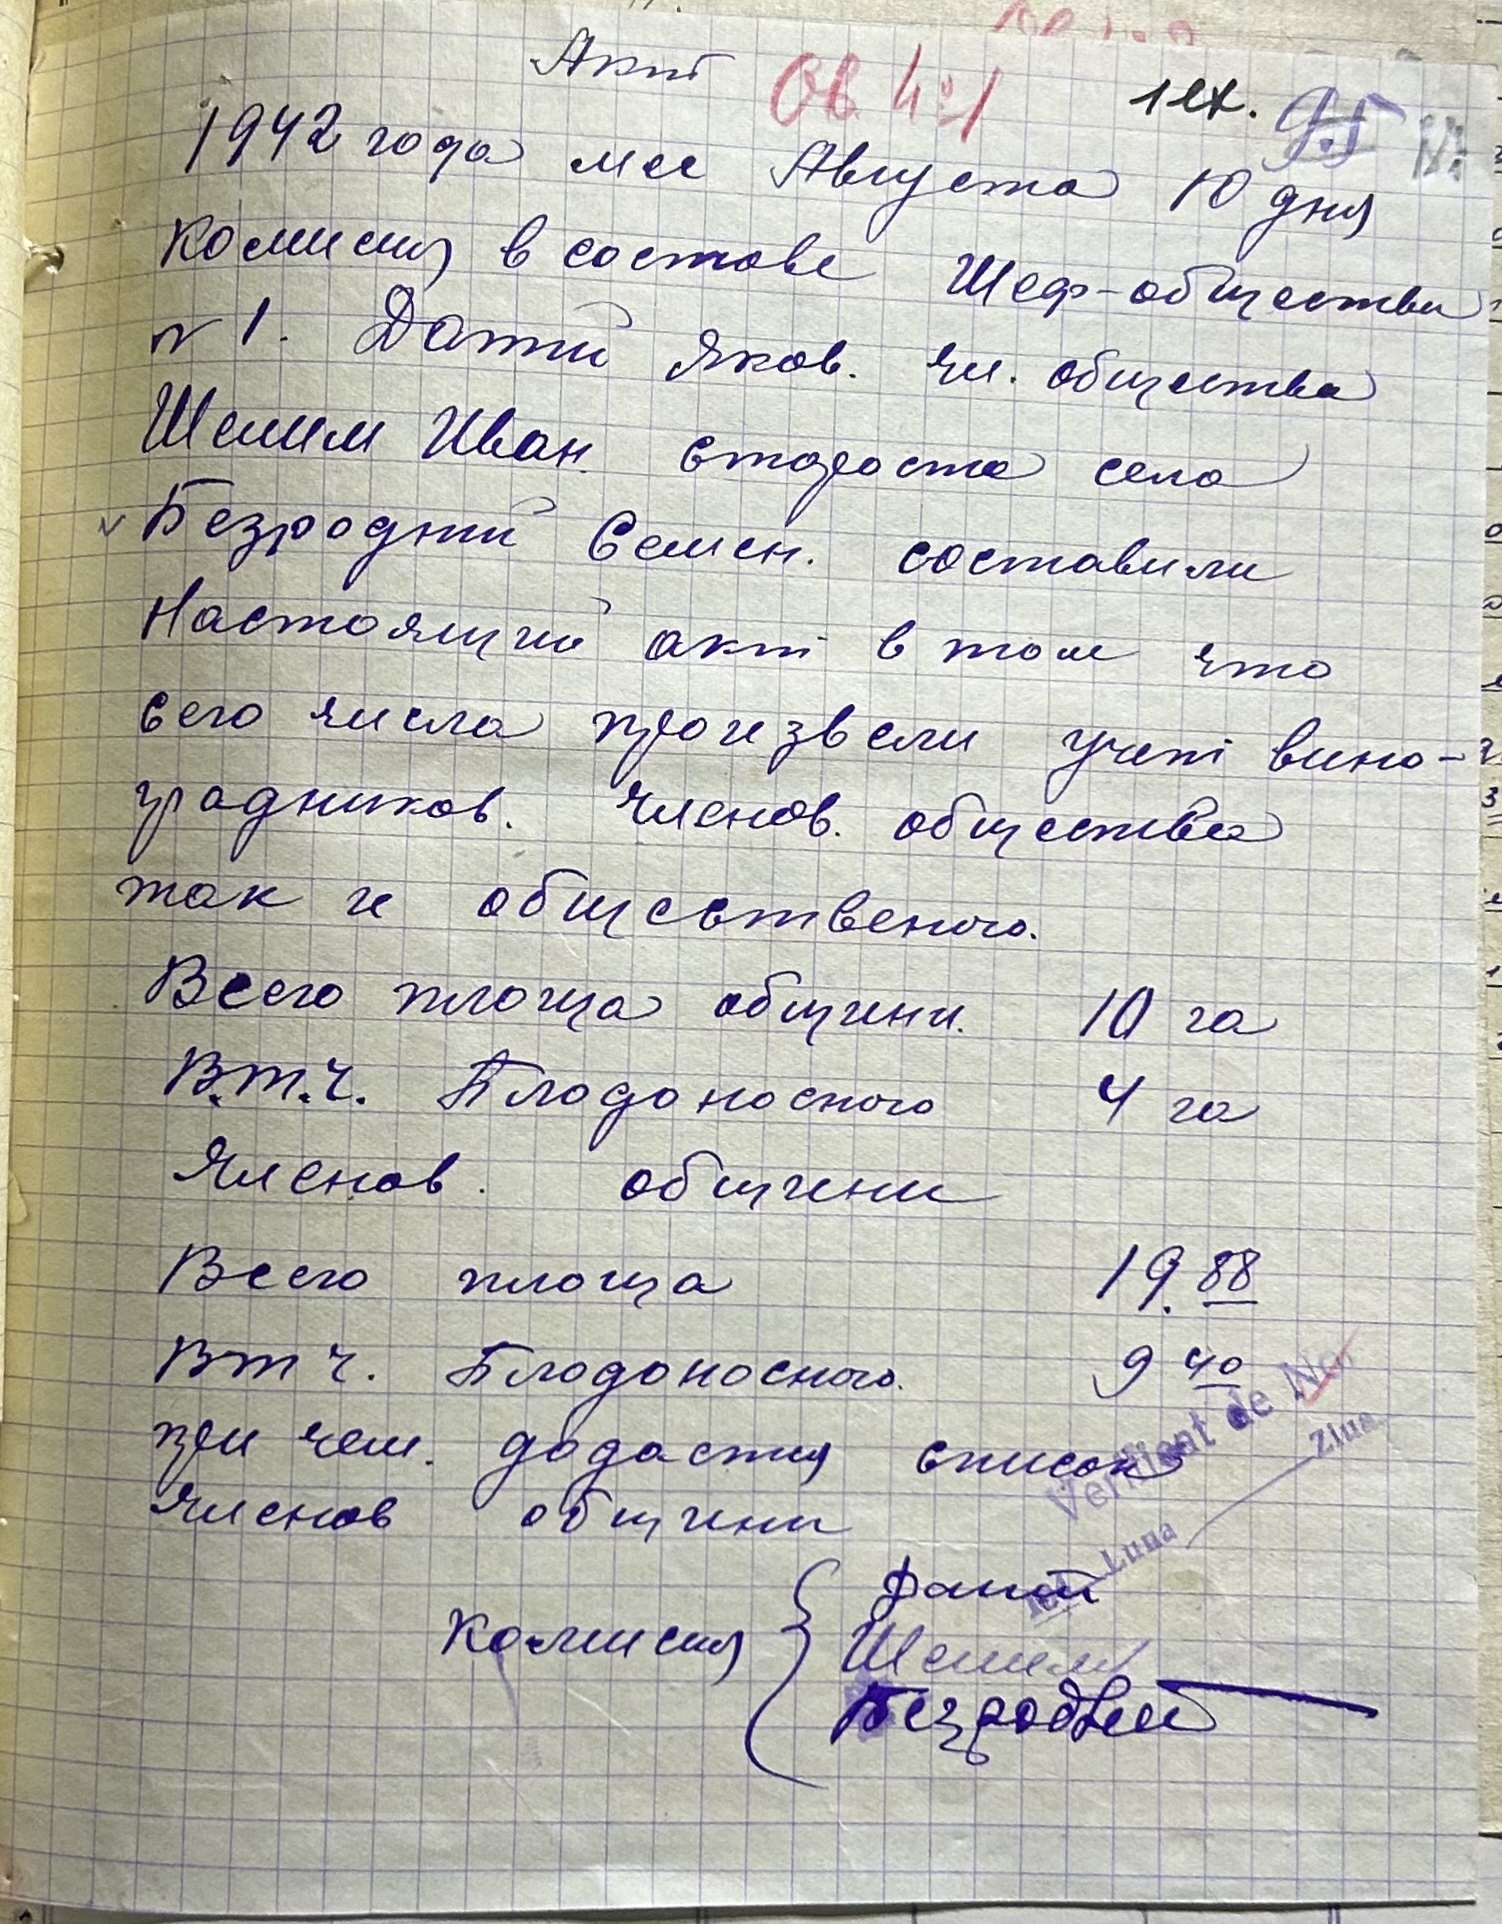 Акт Ов. № 1 1 ех. 95
1942 года мес Августа 10 дня
комисия в составе Шеф-общества
№ 1. Дотий Яков. чл. общества
Шелим Иван. староста села
Безродний Семен. составили
Настоящий акт в том что
сего числа произвели учет вино-
градников. членов. общества
так и общественого.
Всего площа общини. 10 га
В.т.ч. Плодоносного 4 га
Членов. общини
Всего площа 19.88
В т ч. Плодоносного. 9 40
при чем. додастся список
членов общини
Verificat de Not.
Ziua
Luna
комисия
Шелим
Безродний